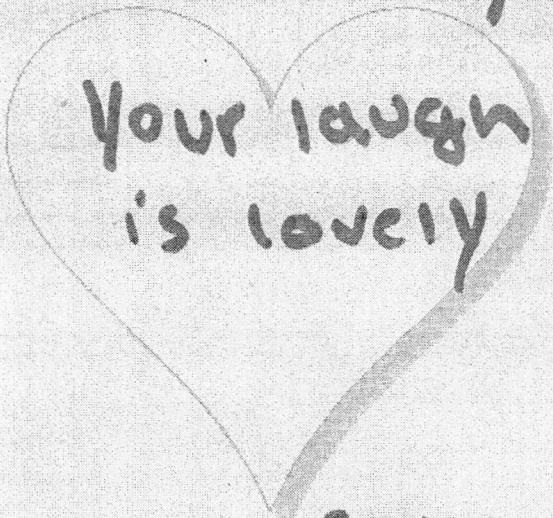 Your laugh
is lovely